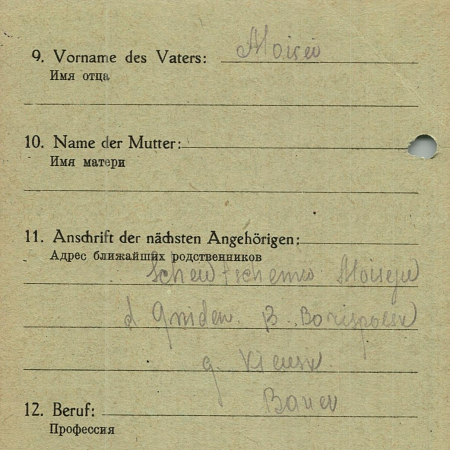 9. Vorname des Vaters: Moisei
Имя отца
10. Name der Mutter:
Имя матери
11. Anschrift der nächsten Angehörigen:
Адрес ближайших родственников
Moiseju
d. Gniden.
g.
12. Beruf: Bauer
Профессия